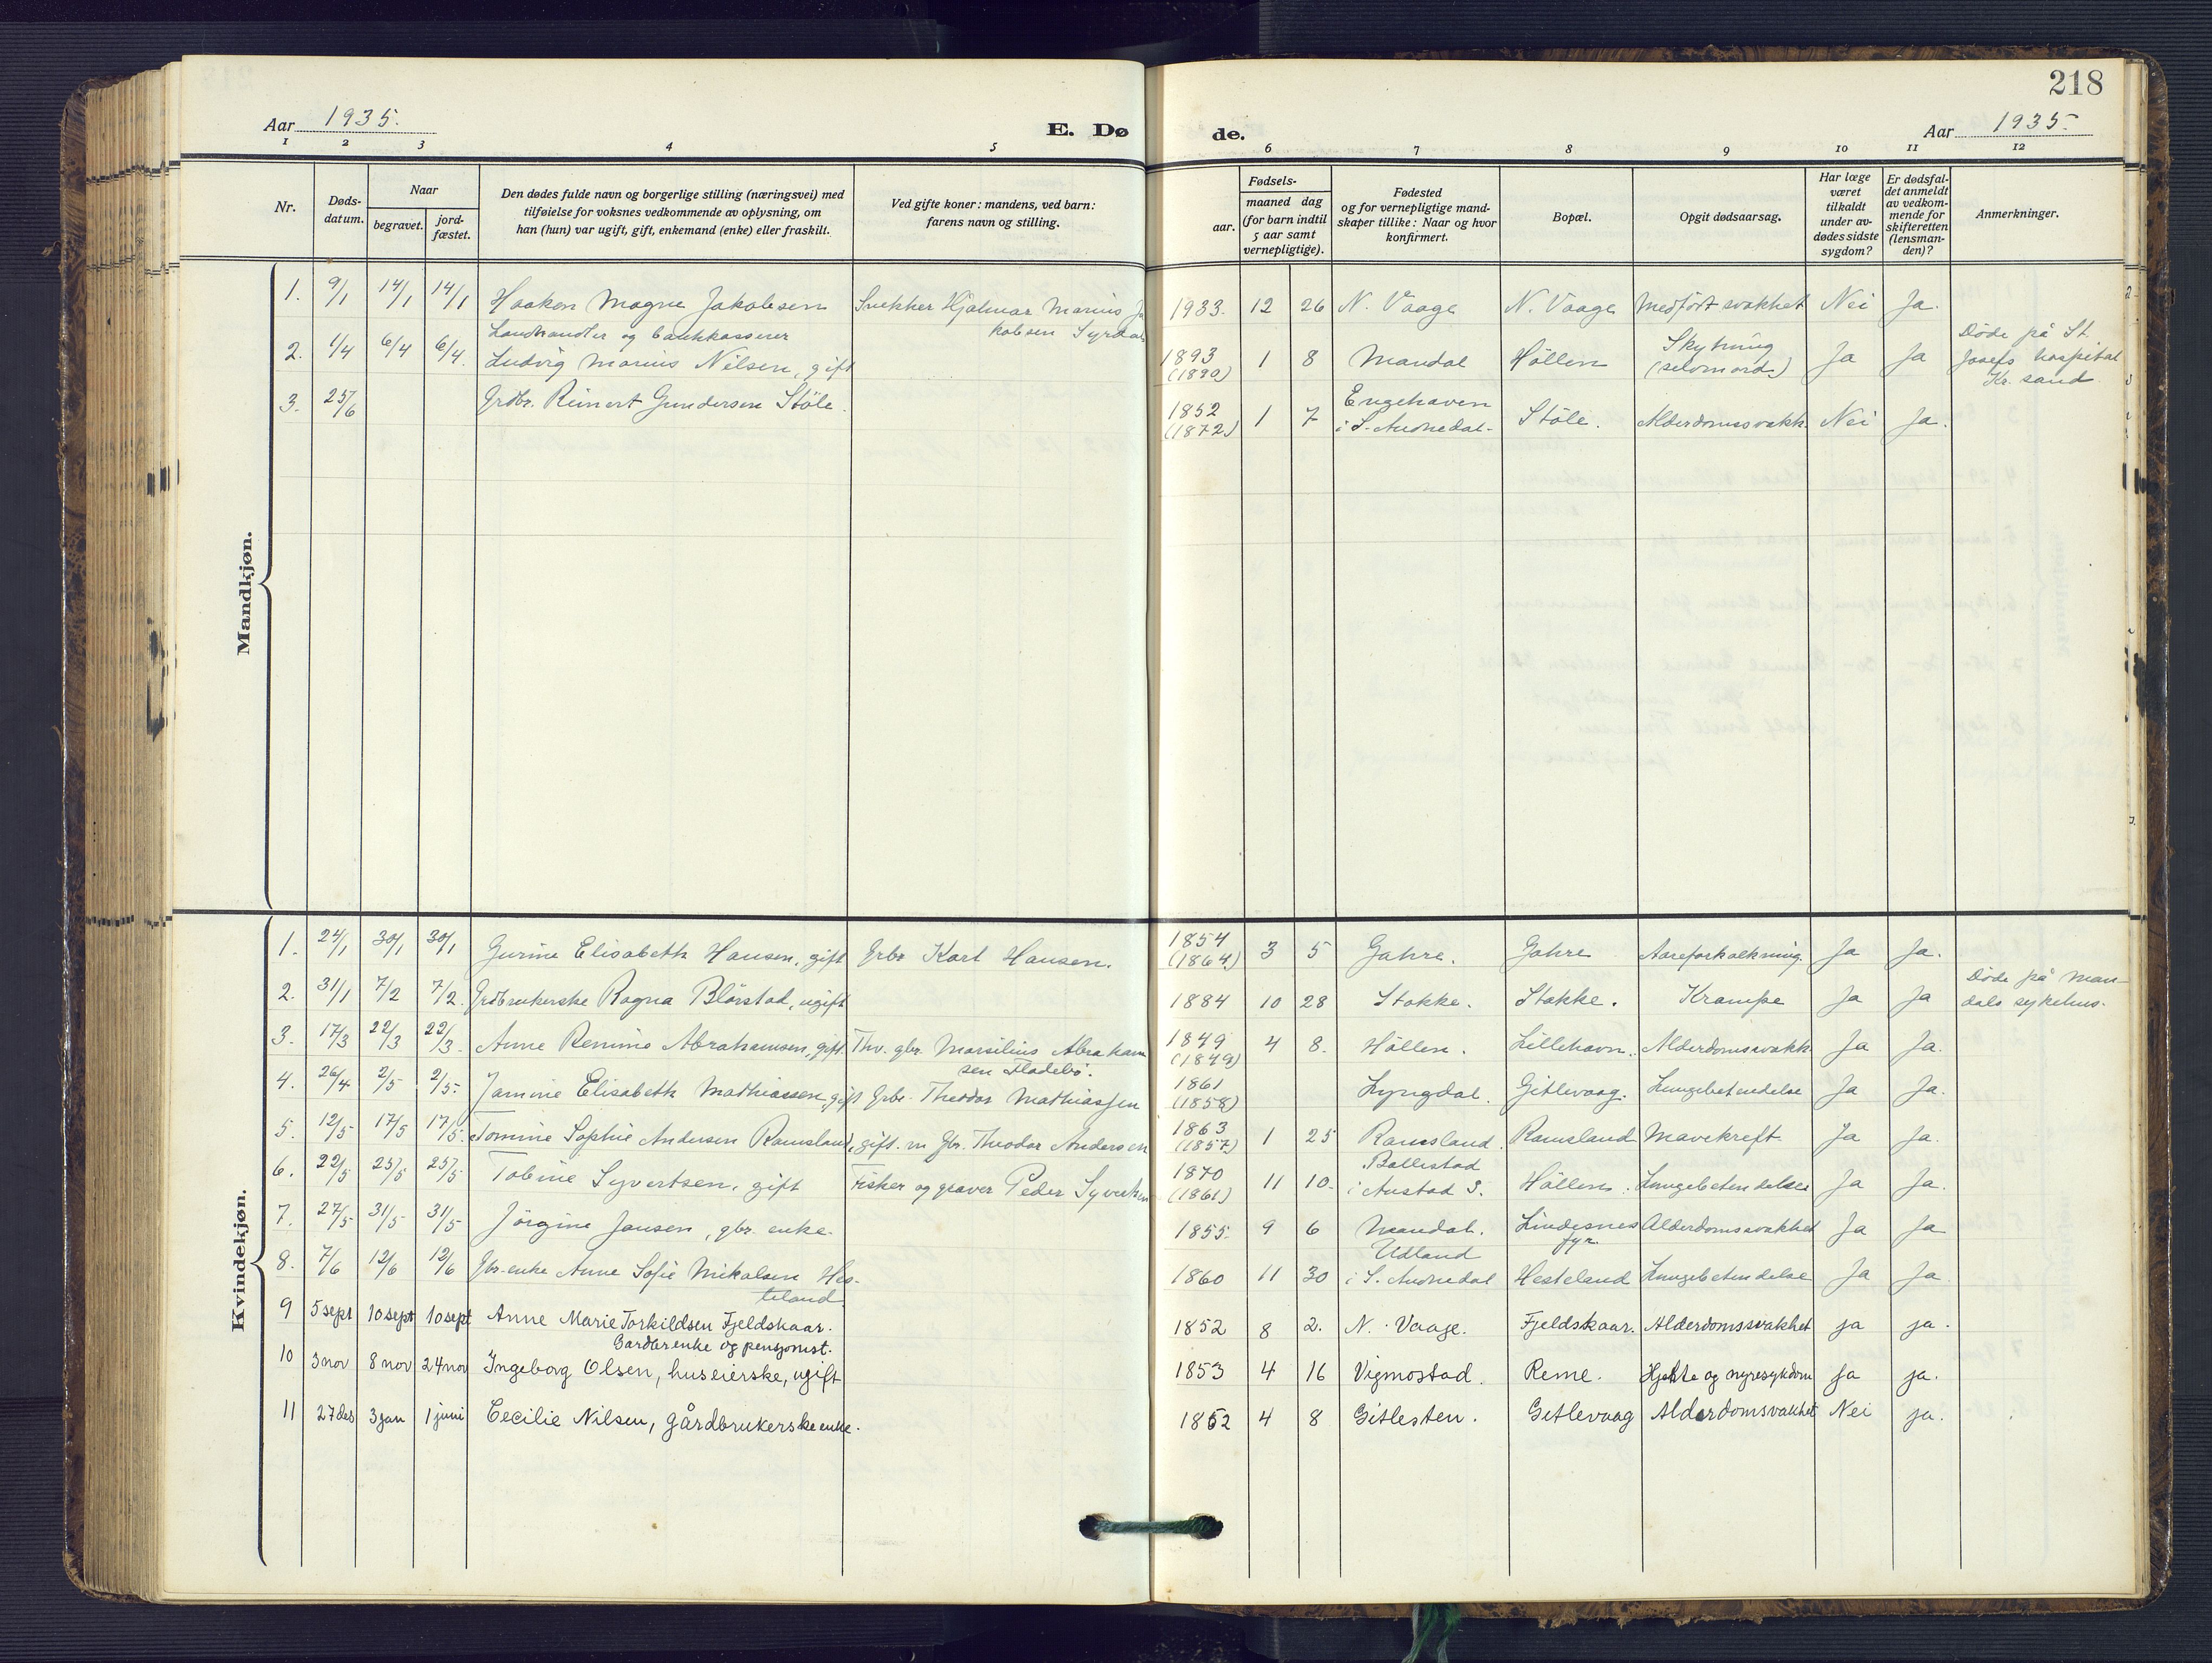 218
Aar 1935.
E. Dø
de.
Aar 1935.
1 2 3 4 5 6 7 8 9 10 11 12
Nr.
Døds-
datum.
Naar
begravet.
jord-
fæstet.
Den dødes fulde navn og borgerlige stilling (næringsvei) med
tilføielse for voksnes vedkommende av oplysning, om
han (hun) var ugift, gift, enkemand (enke) eller fraskilt.
Ved gifte koner: mandens, ved barn:
farens navn og stilling.
Fødsels-
aar.
maaned dag
(for barn indtil
5 aar samt
vernepligtige).
Fødested
og for vernepligtige mand-
skaper tillike: Naar og hvor
konfirmert.
Bopæl.
Opgit dødsaarsag.
Har læge
været
tilkaldt
under av-
dødes sidste
sygdom?
Er dødsfal-
det anmeldt
av vedkom-
mende for
skifteretten
(lensman-
den)?
Anmerkninger.
Mandkjøn.
1. 9/1 14/1 14/1 Haakon Magne Jakobsen Snekker Hjalmar Marius Ja
kobsen Syrdal 1933. 12 26 N. Vaage N. Vaage Medfört svakhet Nei Ja.
Landhandler og bankkasserer
2. 1/4 6/4 6/4. Ludvig Marius Nilsen, gift 1893 (1890) 1 8 Mandal Höllen Skytning (selvmord) Ja Ja Döde på St. Josefs hospital Kr. sand
3. 25/6 Grdbr. Reinert Gundersen Stöle. 1852 (1872) 1 7 Engehaven i S. Audnedal. Stöle. Alderdomssvakh. Nei Ja.
Kvindekjøn.
1. 24/1 30/1 30/1 Gurine Elisabeth Hansen, gift Grbr Karl Hansen. 1854 (1864) 3 5 Gahre. Gahre Aareforkalkning Ja Ja.
2. 31/1 7/2 7/2. Grdbrukerske Ragna Blörstad, ugift 1884 10 28 Stokke. Stokke. Krampe Ja Ja Döde på Man-
dals sykehus.
3. 17/3 22/3 22/3. Anne Remine Abrahamsen, gift. Thv. gbr. Marsilius Abraham
sen Fladebö. 1849 (1849) 4 8. Höllen. Lillehavn. Alderdomssvakh Ja Ja.
4. 26/4 2/5 2/5. Jamine Elisabeth Mathiassen, gift Grbr. Theodor Mathiassen 1861 (1858) Lyngdal. Gitlevaag. Lungebetendelse Ja Ja.
5. 12/5 17/5 17/5. Tomine Sophie Andersen Ramsland, gift. m Gbr. Theodor Andersen 1863 (1857) 1 25 Ramsland. Ramsland Mavekreft Ja Ja.
6. 22/5 25/5 25/5 Tobine Syvertsen, gift Fisker og graver Peder Syvertsen 1870 (1861) 11 10. Ballestad i Austad S. Höllen. Lungebetendelse Ja Ja.
7. 27/5 31/5 31/5 Jörgine Jansen, gbr. enke. 1855. 9 6 Mandal. Lindesnes fyr. Alderdomssvakhet Ja Ja
8. 7/6 12/6 12/6 Gbr-enke Anne Sofie Mikalsen Hes-
teland. 1860 11 30 Udland i S. Audnedal Hesteland Lungebetendelse Ja Ja
9 5 sept 10 sept 10 sept Anne Marie Torkildsen Fjeldskaar.
Gardbr.enke og pensjonist. 1852 8 2. N. Vaage. Fjeldskaar. Alderdomssvakhet ja ja.
10 3 nov 8 nov 24 nov Ingeborg Olsen, huseierske, ugift 1853 4 16 Vigmostad. Reme. Hjerte og nyresykdom Ja ja.
11 27 des 3 jan 1 juni Cecilie Nilsen, gårdbrukerske enke. 1852 4 8 Gitlesten. Gitlevaag Alderdomsvakhet Nei ja.